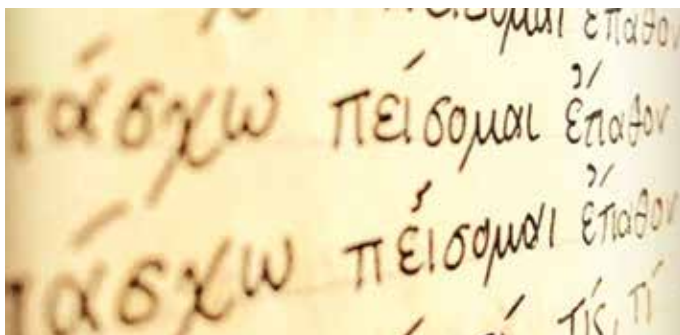 πείσομαι ἔπαθον
πάσχω πείσομαι ἔπαθον
πάσχω πείσομαι ἔπαθον
τίς, τί